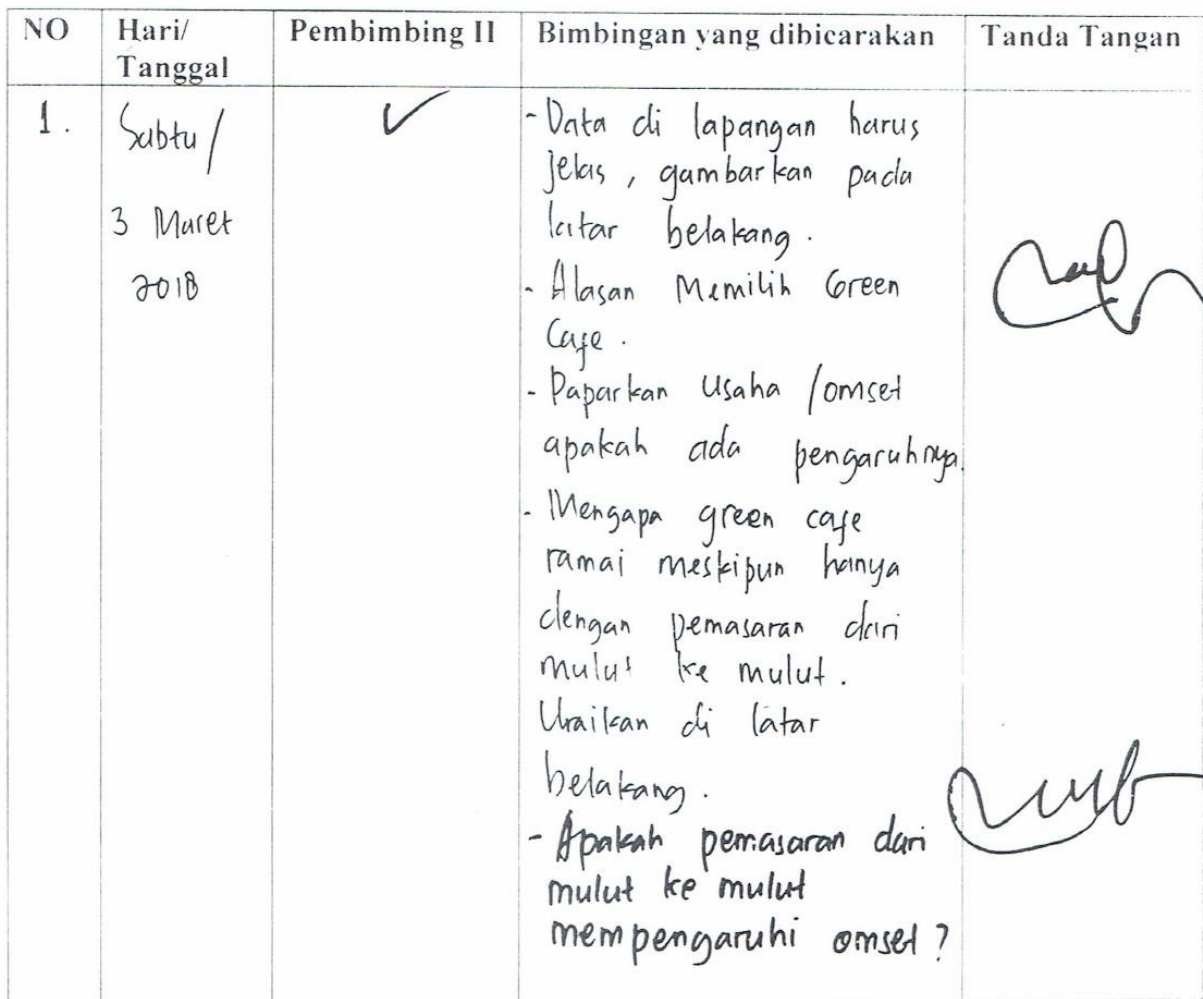 NO Hari/ Pembimbing II Bimbingan yang dibicarakan Tanda Tangan
Tanggal
1. Sabtu/ - Data di lapangan harus
jelas, gambarkan pada
3 Maret latar belakang.
2018 - Alasan Memilih Green
Cafe.
- Paparkan Usaha /omset
apakah ada pengaruhnya.
- Mengapa green cafe
ramai meskipun hanya
dengan pemasaran dari
mulut ke mulut.
Uraikan di latar
belakang.
- Apakah pemasaran dari
mulut ke mulut
mempengaruhi omset?